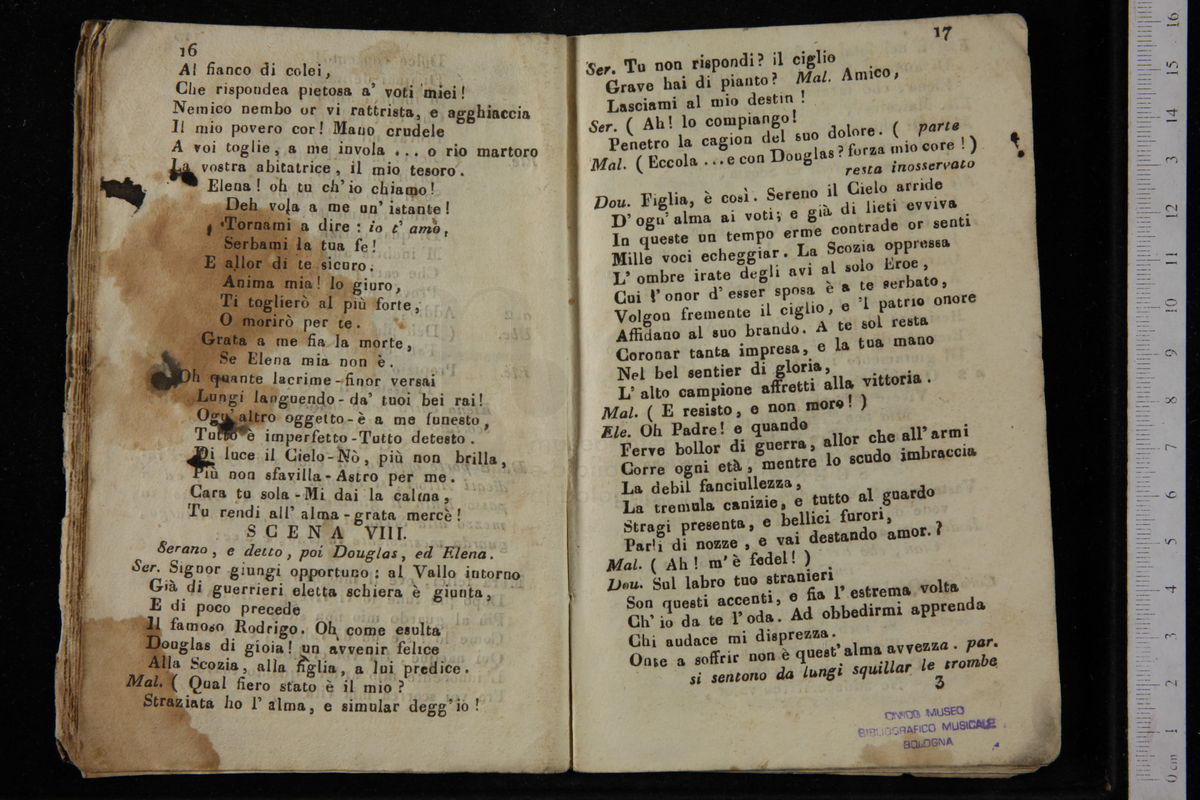 16
Al fianco di colei,
Che rispondea pietosa a' voti miei!
Nemico nembo or vi rattrista, e agghiaccia
Il mio povero cor! Mano crudele
A voi toglie, a me invola ... o rio martoro
La vostra abitatrice, il mio tesoro.
Elena! oh tu ch'io chiamo!
Deh vola a me un' istante!
Tornami a dire: io t' amo,
Serbami la tua fe!
E allor di te sicuro,
Anima mia! lo giuro,
Ti toglierò al più forte,
O morirò per te.
Grata a me fia la morte,
Se Elena mia non è.
Oh quante lacrime-finor versai
Lungi languendo-da' tuoi bei rai!
Ogn' altro oggetto-è a me funesto,
Tutto è imperfetto-Tutto detesto.
Di luce il Cielo-Nò, più non brilla,
Più non sfavilla-Astro per me.
Cara tu sola-Mi dai la calma,
Tu rendi all' alma-grata mercè!
SCENA VIII.
Serano, e detto, poi Douglas, ed Elena.
Ser. Signor giungi opportuno: al Vallo intorno
Già di guerrieri eletta schiera è giunta,
E di poco precede
Il famoso Rodrigo. Oh come esulta
Douglas di gioia! un avvenir felice
Alla Scozia, alla figlia, a lui predice.
Mal. ( Qual fiero stato è il mio?
Straziata ho l' alma, e simular degg'io!
17
Ser. Tu non rispondi? il ciglio
Grave hai di pianto? Mal. Amico,
Lasciami al mio destin!
Ser. ( Ah! lo compiango!
Penetro la cagion del suo dolore. ( parte
Mal. ( Eccola ... e con Douglas? forza mio core! )
resta inosservato
Dou. Figlia, è così. Sereno il Cielo arride
D' ogn' alma ai voti; e già di lieti evviva
In queste un tempo erme contrade or senti
Mille voci echeggiar. La Scozia oppressa
L' ombre irate degli avi al solo Eroe,
Cui l'onor d' esser sposa è a te serbato,
Volgon fremente il ciglio, e 'l patrio onore
Affidano al suo brando. A te sol resta
Coronar tanta impresa, e la tua mano
Nel bel sentier di gloria,
L' alto campione affretti alla vittoria.
Mal. ( E resisto, e non moro! )
Ele. Oh Padre! e quando
Ferve bollor di guerra, allor che all' armi
Corre ogni età, mentre lo scudo imbraccia
La debil fanciullezza,
La tremula canizie, e tutto al guardo
Stragi presenta, e bellici furori,
Parli di nozze, e vai destando amor.?
Mal. ( Ah! m'è fedel! )
Dou. Sul labro tuo stranieri
Son questi accenti, e fia l' estrema volta
Ch' io da te l'oda. Ad obbedirmi apprenda
Chi audace mi disprezza.
Onte a soffrir non è quest' alma avvezza. par.
si sentono da lungi squillar le trombe
3
CIVICO MUSEO
BIBLIOGRAFICO MUSICALE
BOLOGNA
0 cm 1 2 3 4 5 6 7 8 9 10 11 12 13 14 15 16